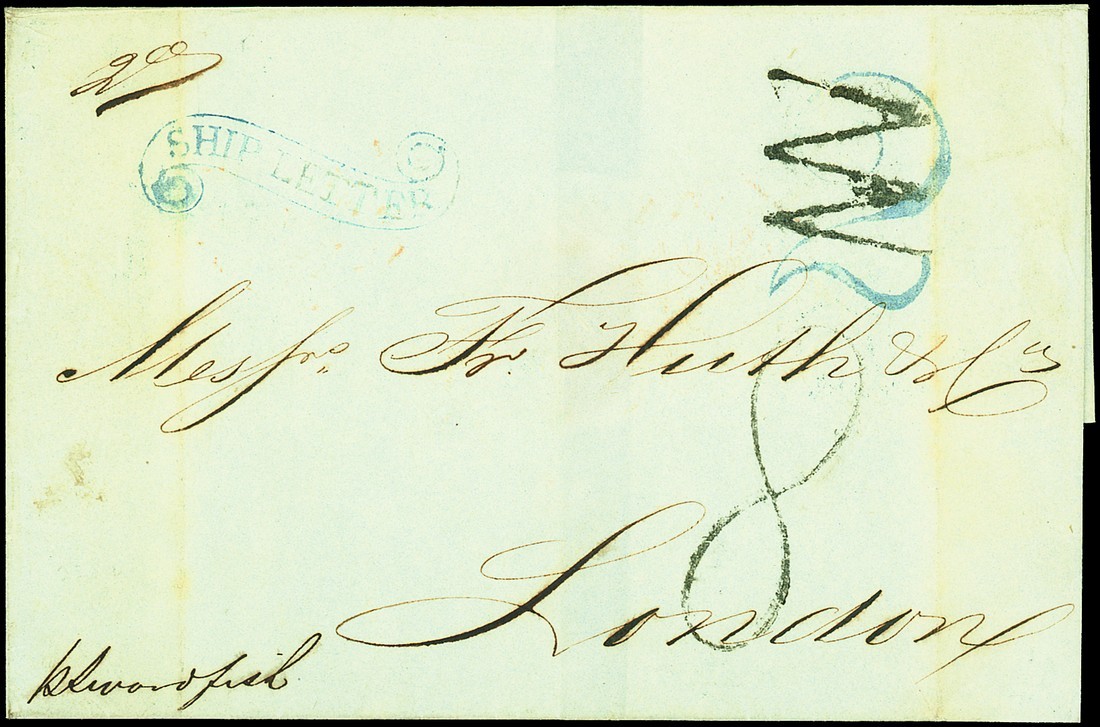 2do
SHIP LETTER
2
8
Messrs. Fr. Huth & Co
London
p Swordfish